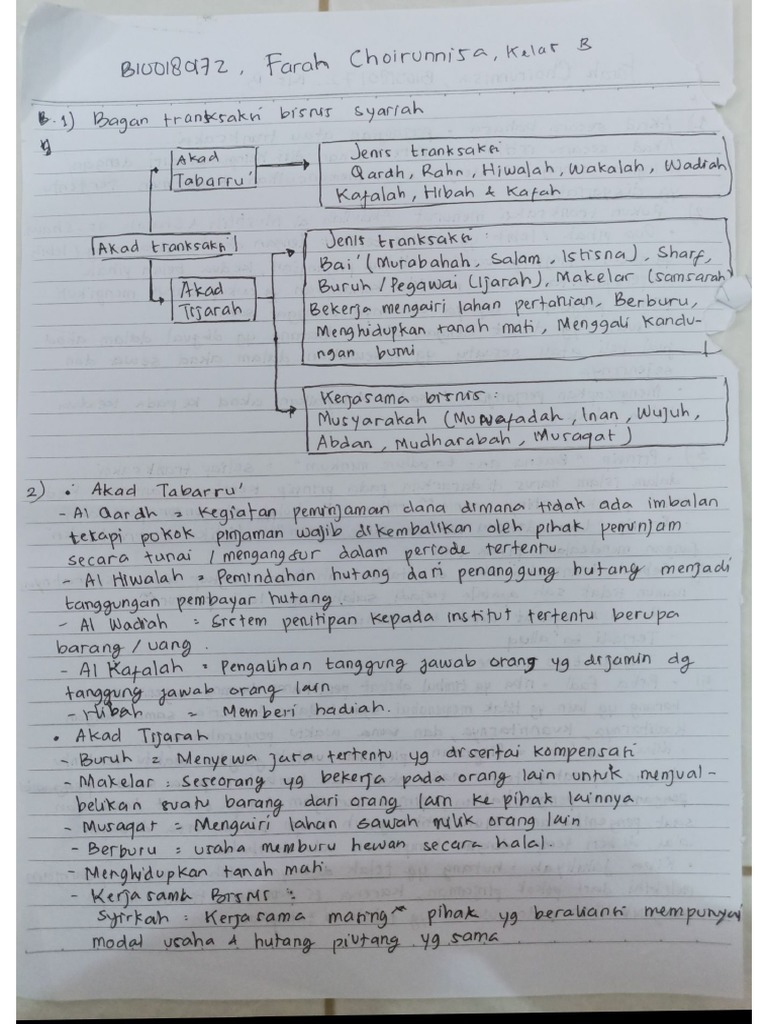 B10018072, Farah Choirunnisa, Kelas B
B.1) Bagan tranksaksi bisnis syariah
Akad Tabarru'
Jenis tranksaksi
Qardh, Rahn, Hiwalah, Wakalah, Wadiah
Kafalah, Hibah & Kafah
Akad tranksaksi
Akad Tijarah
Jenis tranksaksi :
Bai' (Murabahah, Salam, Istisna), Sharf,
Buruh / Pegawai (Ijarah), Makelar (samsarah)
Bekerja mengairi lahan pertanian, Berburu,
Menghidupkan tanah mati, Menggali Kandu-
ngan bumi
Kerjasama bisnis :
Musyarakah (Muwafadah, Inan, Wujuh,
Abdan, Mudharabah, Musaqat)
2) • Akad Tabarru'
- Al Qardh = Kegiatan peminjaman dana dimana tidak ada imbalan
tetapi pokok pinjaman wajib dikembalikan oleh pihak peminjam
secara tunai / mengangsur dalam periode tertentu
- Al Hiwalah = Pemindahan hutang dari penanggung hutang menjadi
tanggungan pembayar hutang.
- Al Wadiah = Sistem penitipan kepada institut tertentu berupa
barang / uang.
- Al Kafalah = Pengalihan tanggung jawab orang yg dijamin dg
tanggung jawab orang lain
- Hibah = Memberi hadiah.
• Akad Tijarah
- Buruh = Menyewa jasa tertentu yg disertai kompensasi
- Makelar : Seseorang yg bekerja pada orang lain untuk menjual-
belikan suatu barang dari orang lain ke pihak lainnya
- Musaqat = Mengairi lahan sawah milik orang lain
- Berburu : usaha memburu hewan secara halal.
- Menghidupkan tanah mati
- Kerjasama Bisnis :
Syirkah : Kerjasama masing" pihak yg beraliansi mempunyai
modal usaha & hutang piutang yg sama